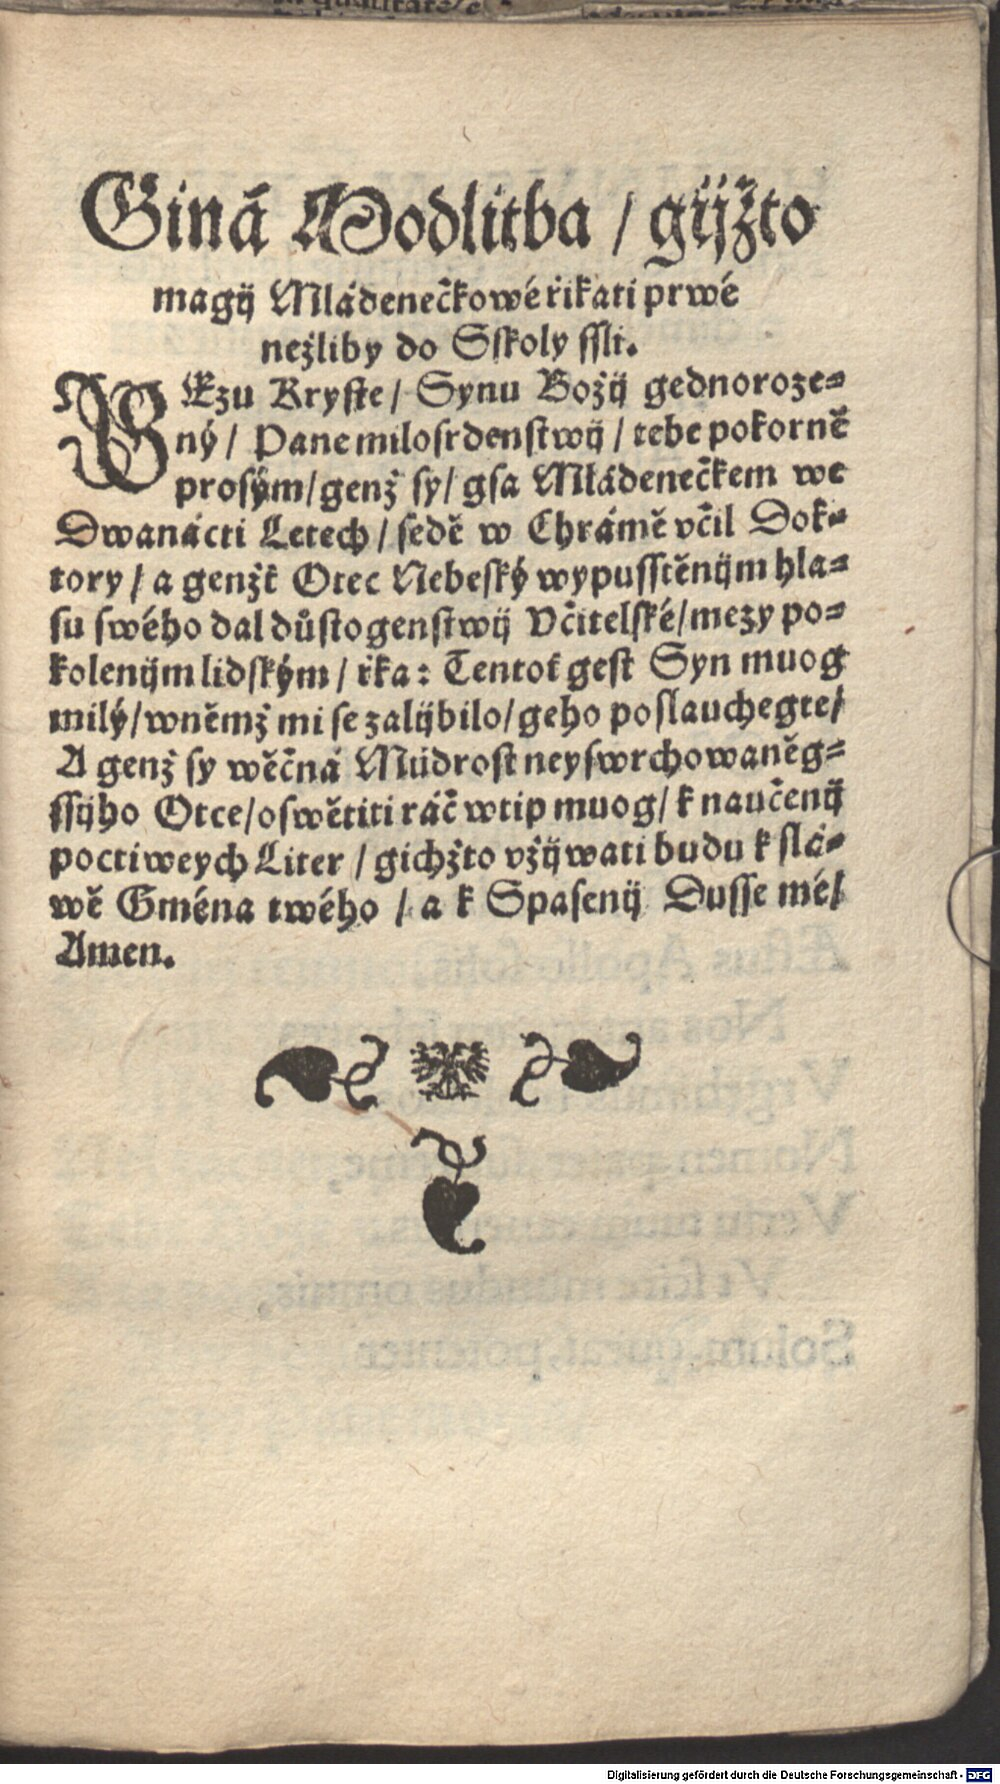 Giná Modlitba / gijžto
magij Mládenečkowé řikati prwé
nežliby do Sskoly ssli.
GEzu Kryste / Synu Božij gednoroze=
ný / Pane milosrdenstwij / tebe pokorně
prosým / genž sy / gsa Mládenečkem we
Dwanácti Letech / sedě w Chrámě včil Dok=
tory / a genžť Otec Nebeský wypusstěnijm hla=
su swého dal důstogenstwij Včitelské / mezy po=
kolenijm lidským / řka: Tentoť gest Syn muog
milý / wněmž mi se zalijbilo / geho poslauchegte /
A genž sy wěčná Múdrost neyswrchowaněg=
ssijho Otce / oswětiti ráč wtip muog / k naučenij
poctiweych Liter / gichžto vžijwati budu k slá=
wě Gména twého / a k Spasenij Dusse mé /
Amen.
Digitalisierung gefördert durch die Deutsche Forschungsgemeinschaft - DFG